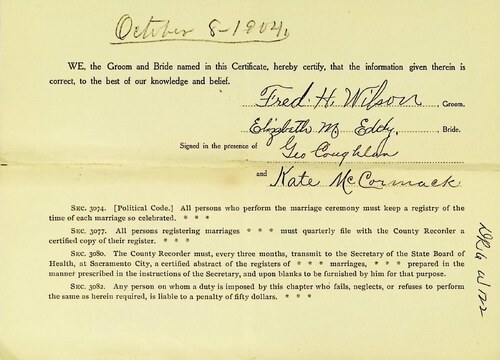 October 8-1904.
WE, the Groom and Bride named in this Certificate, hereby certify, that the information given therein is
correct, to the best of our knowledge and belief.
Fred. H. Wilson Groom.
Elizabeth M Eddy. Bride.
Signed in the presence of Geo Coughlan
and Kate McCormack
SEC. 3074. [Political Code.] All persons who perform the marriage ceremony must keep a registry of the
time of each marriage so celebrated. * * *
SEC. 3077. All persons registering marriages * * * must quarterly file with the County Recorder
a certified copy of their register. * * *
SEC. 3080. The County Recorder must, every three months, transmit to the Secretary of the State Board of
Health, at Sacramento City, a certified abstract of the registers of * * * marriages, * * * prepared in the
manner prescribed in the instructions of the Secretary, and upon blanks to be furnished by him for that purpose.
SEC. 3082. Any person on whom a duty is imposed by this chapter who fails, neglects, or refuses to perform
the same as herein required, is liable to a penalty of fifty dollars. * * *